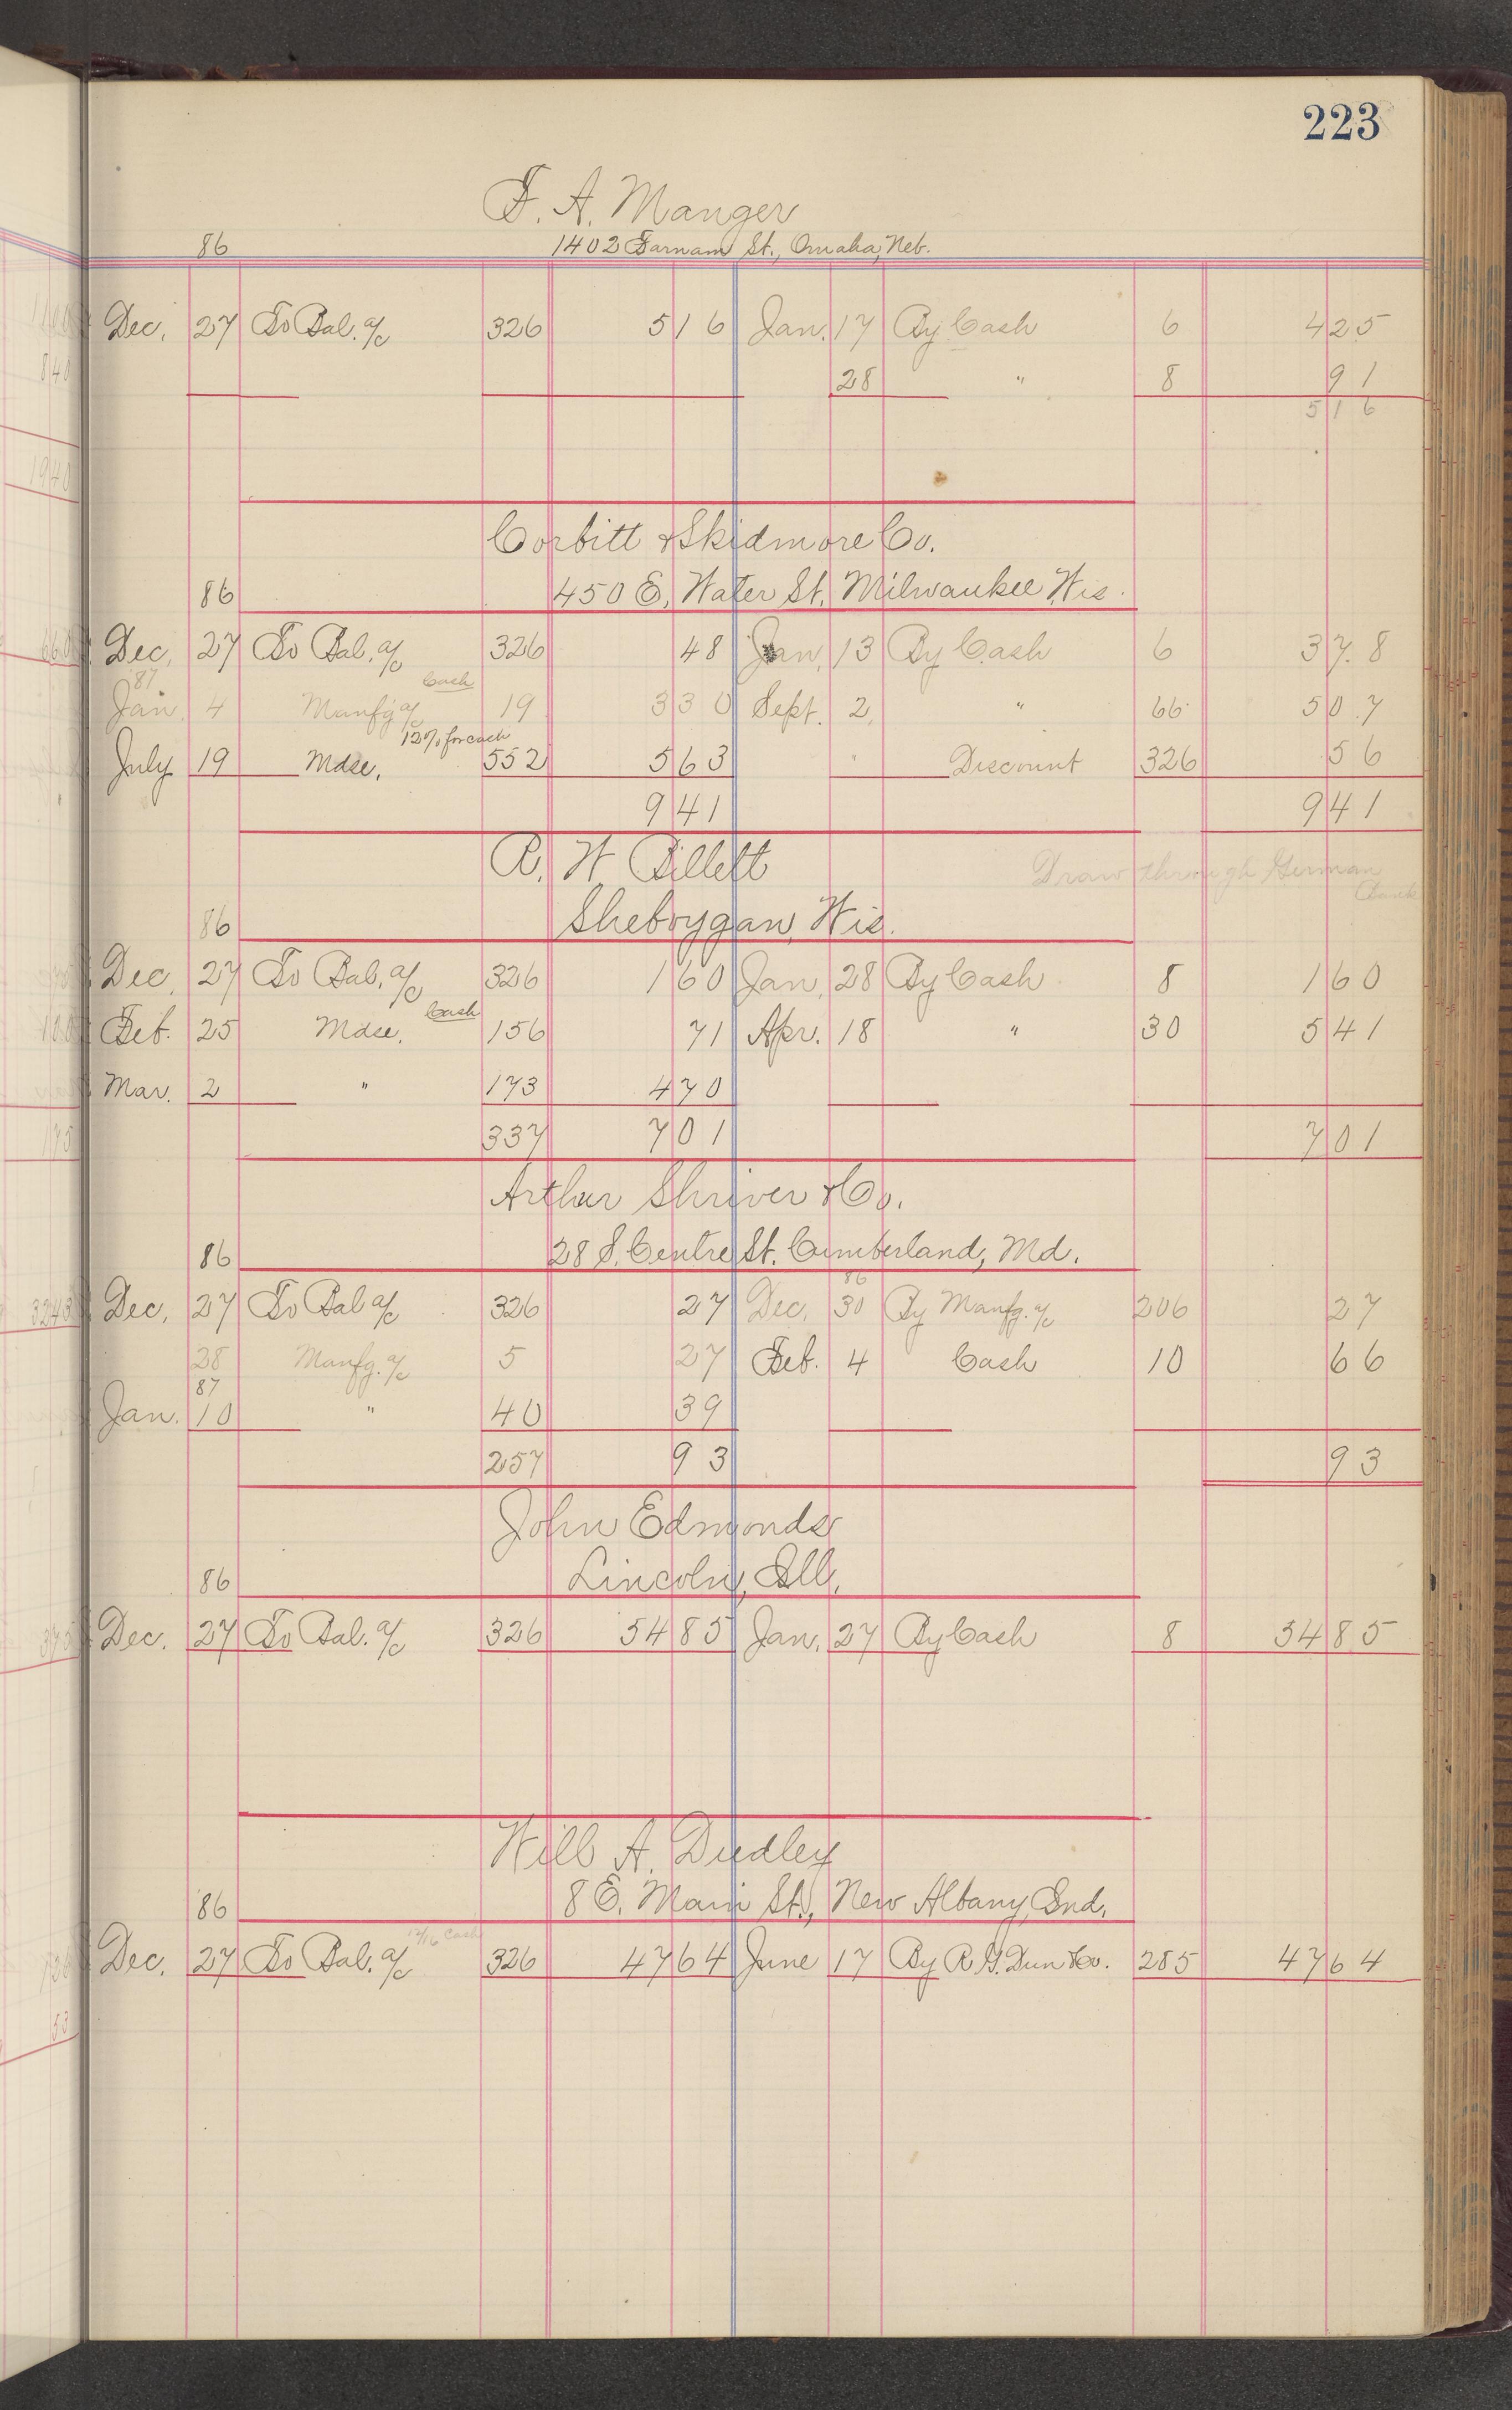 223
F. A. Manger
86 1402 Farnam St., Omaha, Neb.
Dec. 27 To Bal. a/c 326 5 16 Jan. 17 By Cash 6 4 25
28 " 8 91
5 16
Corbitt & Skidmore Co.
86 450 E. Water St. Milwaukee Wis.
Dec. 27 To Bal. a/c 326 48 Jan. 13 By Cash 6 3 78
87 Cash
Jan. 4 Manfg a/c 19 3 30 Sept. 2 " 66 5 07
12% for cash
July 19 Mdse. 552 5 63 " Discount 326 56
9 41 9 41
R. W. Billett
Draw through German Bank
86 Sheboygan, Wis.
Dec. 27 To Bal. a/c 326 1 60 Jan. 28 By Cash 8 1 60
Cash
Feb. 25 Mdse. 156 71 Apr. 18 " 30 5 41
Mar. 2 " 173 4 70
337 7 01 7 01
Arthur Shriver & Co.
86 28 S. Centre St. Cumberland, Md.
86
Dec. 27 To Bal a/c 326 27 Dec. 30 By Manfg. a/c 206 27
28 Manfg. a/c 5 27 Feb. 4 Cash 10 66
87
Jan. 10 " 40 39
257 93 93
John Edmonds
86 Lincoln, Ill.
Dec. 27 To Bal. a/c 326 34 85 Jan. 27 By Cash 8 34 85
Will A. Dudley
86 8 E. Main St., New Albany, Ind.
Cash
Dec. 27 To Bal. a/c 326 47 64 June 17 By R. G. Dun & Co. 285 47 64